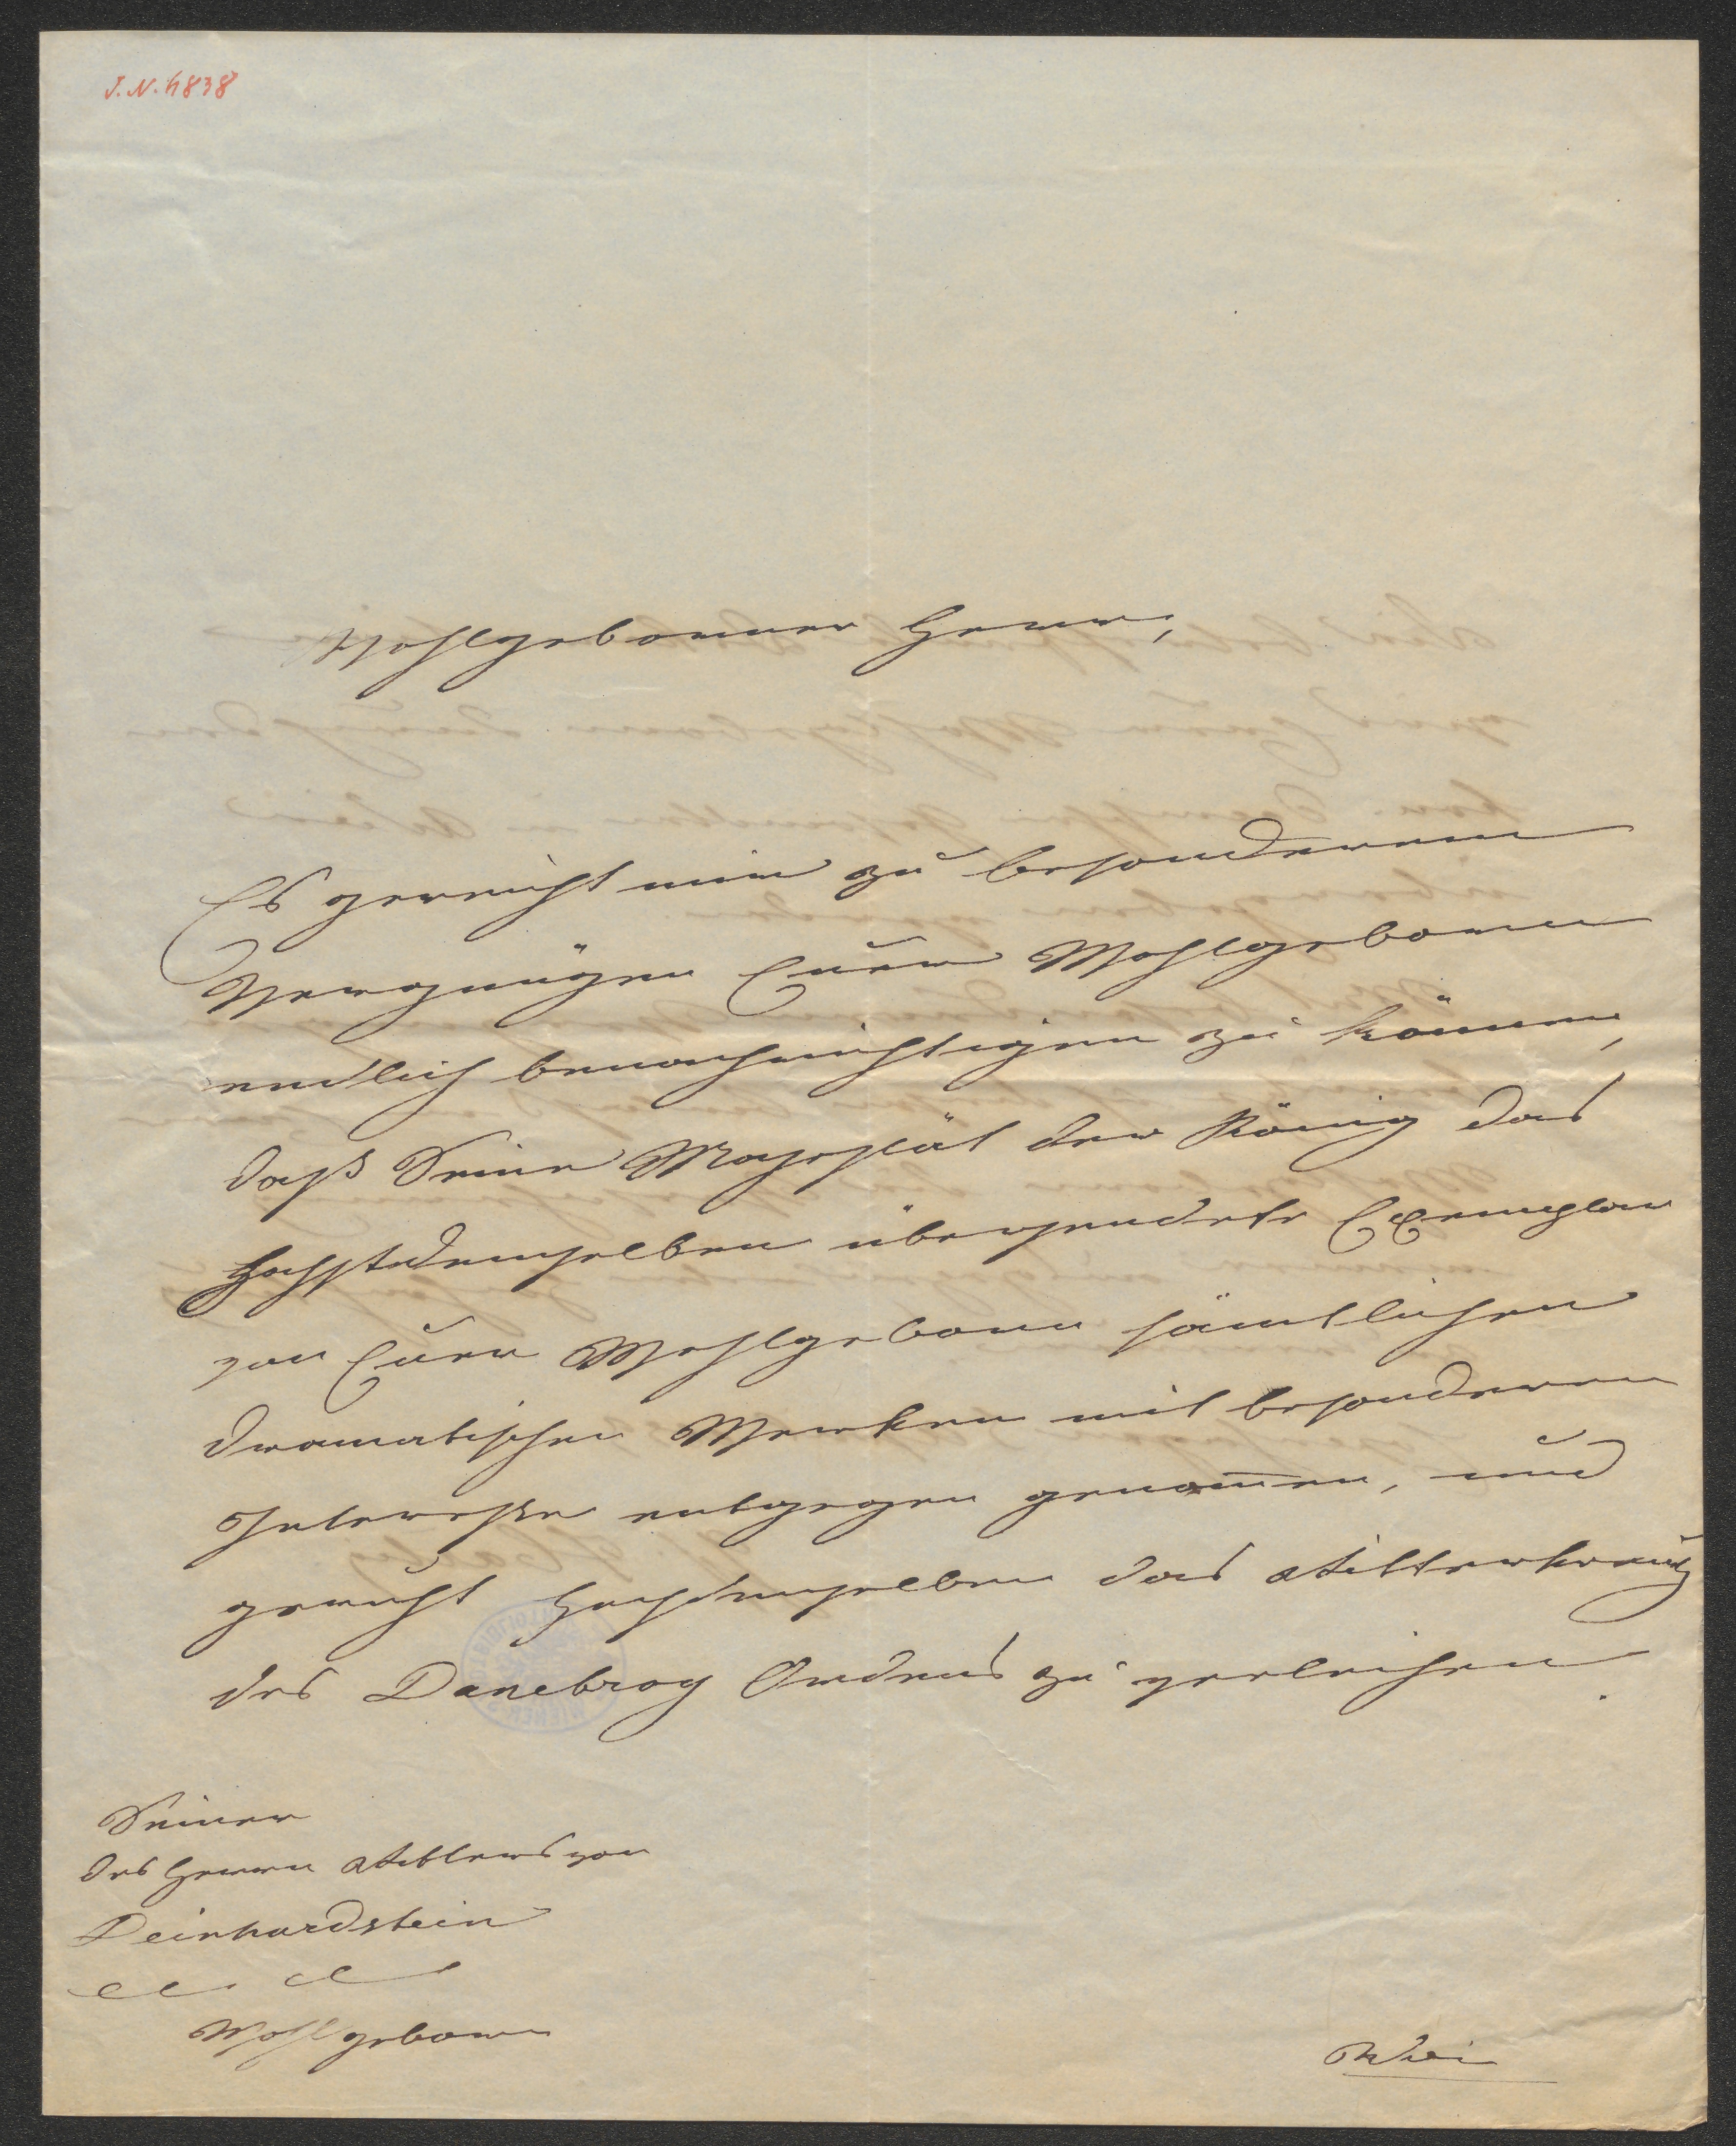 J.N. 4838
Wohlgeborner Herr,
Es gereicht mir zu besonderem
Vergnügen Euer Wohlgeboren
endlich benachrichtigen zu können,
daß Seine Majestät der König das
Höchstdemselben übersendete Exemplar
von Euer Wohlgeboren sämtlichen
dramatischen Werken mit besonderem
Interesse entgegen genom̄en, und
geruht Hochdenselben das Ritterkreutz
des Danebrog Ordens zu verleihen.
Seiner
des Herrn Ritters von
Deinhardstein
Wohlgeboren